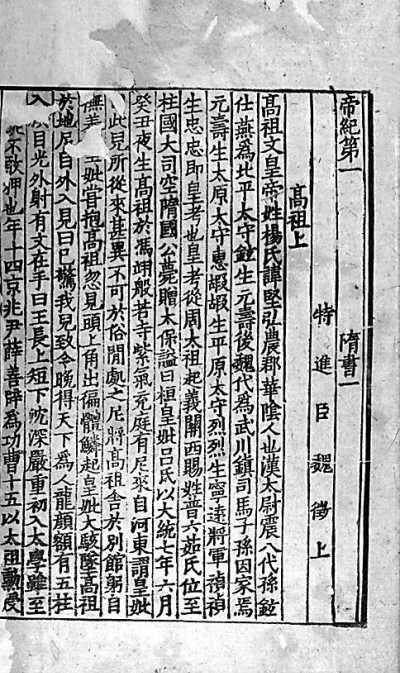 帝紀第一　隋書一
特進臣魏徵上
高祖上
高祖文皇帝姓楊氏諱堅弘農郡華陰人也漢太尉震八代孫鉉
仕燕為北平太守鉉生元壽後魏代為武川鎮司馬子孫因家焉
元壽生太原太守惠嘏嘏生平原太守烈烈生寧遠將軍禎禎
生忠忠即皇考也皇考從周太祖起義關西賜姓普六茹氏位至
柱國大司空隋國公薨贈太保謚曰桓皇妣呂氏以大統七年六月
癸丑夜生高祖於馮翊般若寺紫氣充庭有尼來自河東謂皇妣
此兒所從來甚異不可於俗間處之尼將高祖舍於別館躬自
撫妣嘗抱高祖忽見頭上角出徧體鱗起皇妣大駭墜高祖
於地尼自外入見曰已驚我兒致令晚得天下為人龍顏額有五柱
入目光外射有文在手曰王長上短下沈深嚴重初入太學雖至
不敢狎也年十四京兆尹薛善辟為功曹十五以太祖勳授